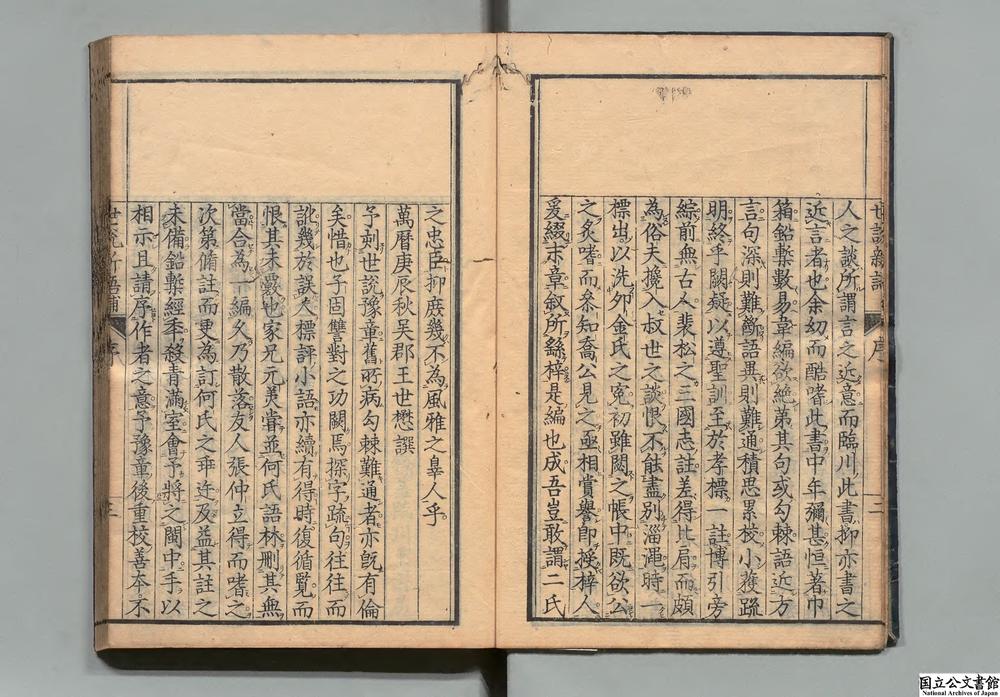 人之談所謂言之近意而臨川此書抑亦書之
近言者也余幼而酷嗜此書中年彌甚恒著巾
箱鉛槧數易韋編欲絶第其句或勾棘語近方
言句深則難斷語異則難通積思累校小獲疏
明終乎闕疑以遵聖訓至於孝標一註博引旁
綜前無古人裴松之三國志註差得比肩而頗
為俗夫攙入叔世之談恨不能盡別淄澠時一
標出以洗卯金氏之寃初雖閟之帳中既欲公
之炙嗜而參知喬公見之亟相賞譽即授梓人
爰綴末章敘所繇梓是編也成吾豈敢謂二氏
之忠臣抑庶幾不為風雅之辠人乎
萬曆庚辰秋吳郡王世懋譔
予刻世說豫章舊所病勾棘難通者亦旣有倫
矣惜也子固讐對之功闕焉探字疏句往往而
訛幾於誤人標評小語亦續有得時復循覧而
恨其未覈也家兄元美甞並何氏語林刪其無
當合為一編久乃散落友人張仲立得而嗜之
次第脩註而更為訂何氏之乖迕及益其註之
未備鉛槧經季殺青滿室會予將之閩中手以
相示且請序作者之意予豫章後重校善本不
序
二
世說新語補
序
三
国立公文書館
National Archives of Japan